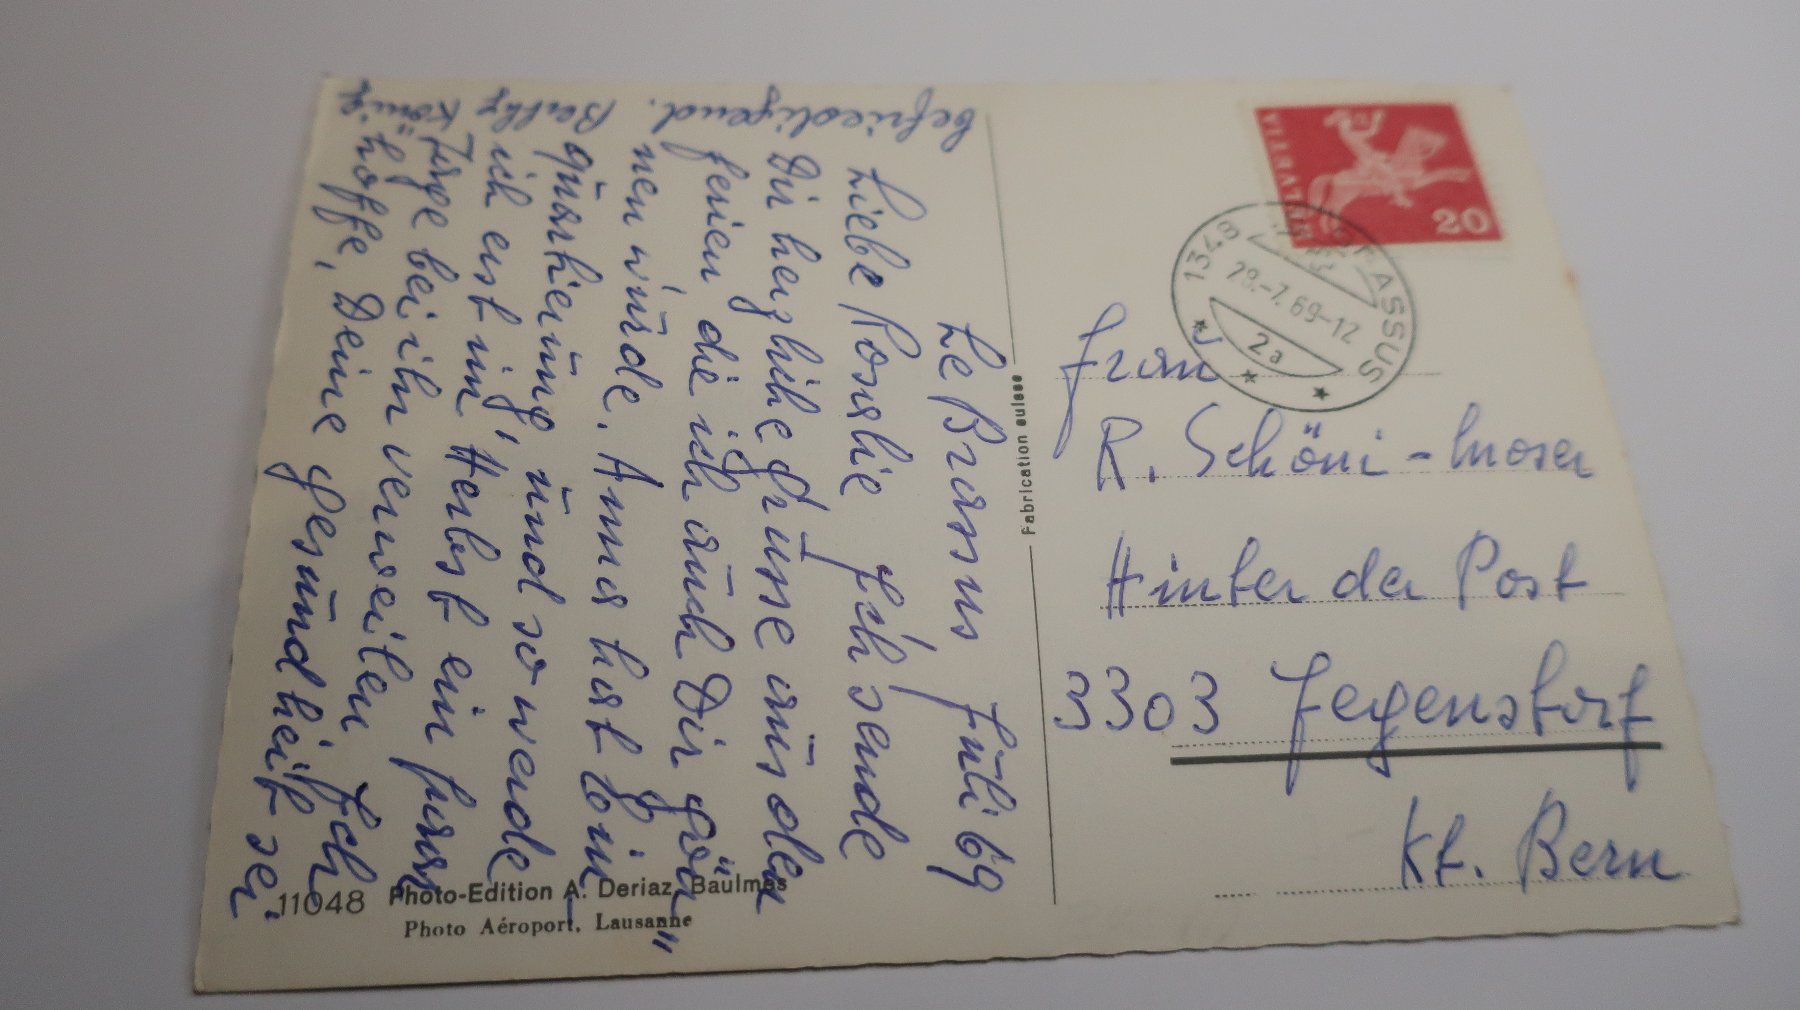 Le Brassus Juli 69
Liebe Rosalie Ich sende
Dir herzliche Grüsse aus den
ferien die ich auch Dir gön"
nen würde. Anna hast bin
und so werde
ich erst im Herbst ein paar
Tage bei ihr verweilen Ich
hoffe, Deine Gesundheit sei
befriedigend.
König
Frau
R. Schöni-Moser
Hinter der Post
3303 Jegenstorf
Kt. Bern
HELVETIA
20
1348 LE BRASSUS
28.-7.69-12
2a
Fabrication suisse
11048 Photo-Edition A. Deriaz, Baulmes
Photo Aéroport, Lausanne